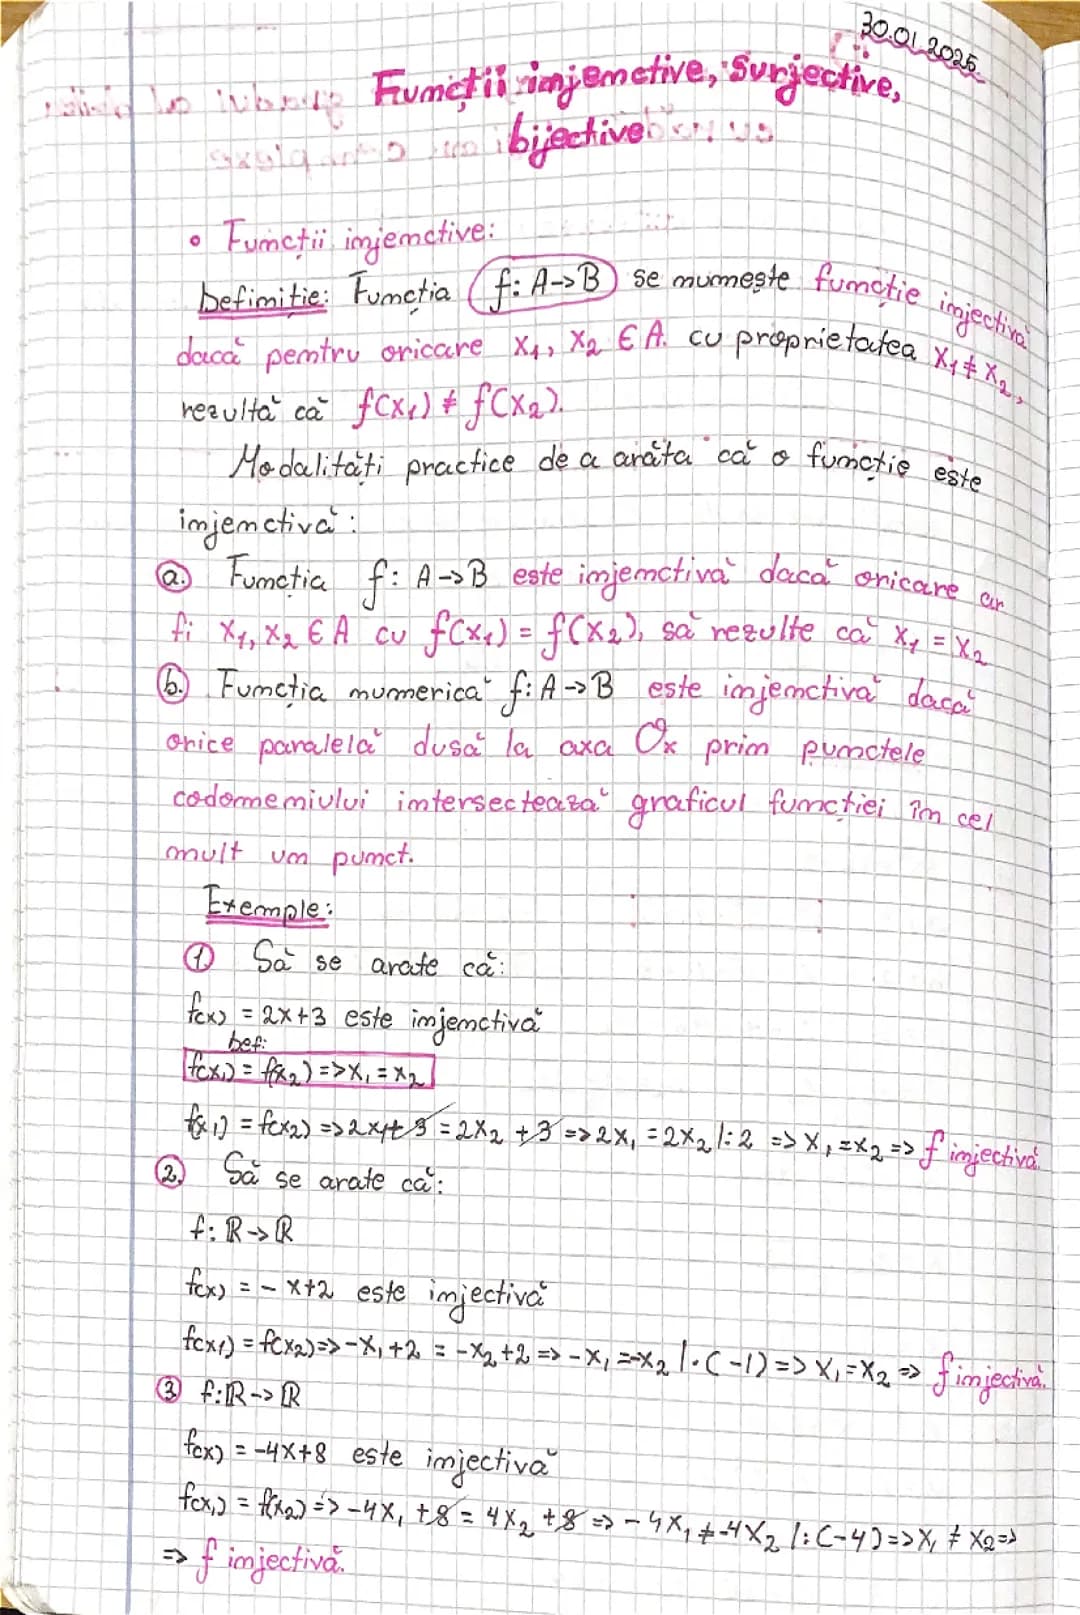 30.01.2025
Funcții injenctive, Surjective,
bijective
• Funcții injenctive:
Definiție: Funcția f: A->B se numește funcție injectivă
dacă pentru oricare x₁, x₂ ∈ A. cu proprietatea x₁ ≠ x₂,
rezultă că f(x₁) ≠ f(x₂).
Modalități practice de a arăta că o funcție este
injenctivă:
a. Funcția f: A->B este injenctivă dacă oricare ar
fi x₁, x₂ ∈ A cu f(x₁) = f(x₂), să rezulte că x₁ = x₂
b. Funcția numerică f: A->B este injenctivă dacă
orice paralelă dusă la axa Ox prin punctele
codomeniului intersectează graficul funcției în cel
mult un punct.
Exemple:
1 Să se arate că:
f(x) = 2x+3 este injenctivă
Def:
f(x₁) = f(x₂) => x₁ = x₂
f(x₁) = f(x₂) => 2x₁+3 = 2x₂ +3 => 2x₁ = 2x₂ |:2 => x₁ = x₂ => f injectivă
2. Să se arate că:
f: ℝ->ℝ
f(x) = -x+2 este injectivă
f(x₁) = f(x₂) => -x₁+2 = -x₂+2 => -x₁ = -x₂ |·(-1) => x₁ = x₂ => f injectivă.
3 f: ℝ->ℝ
f(x) = -4x+8 este injectivă
f(x₁) = f(x₂) => -4x₁ +8 = 4x₂ +8 => -4x₁ ≠ -4x₂ |:(-4) => x₁ ≠ x₂ =>
=> f injectivă.